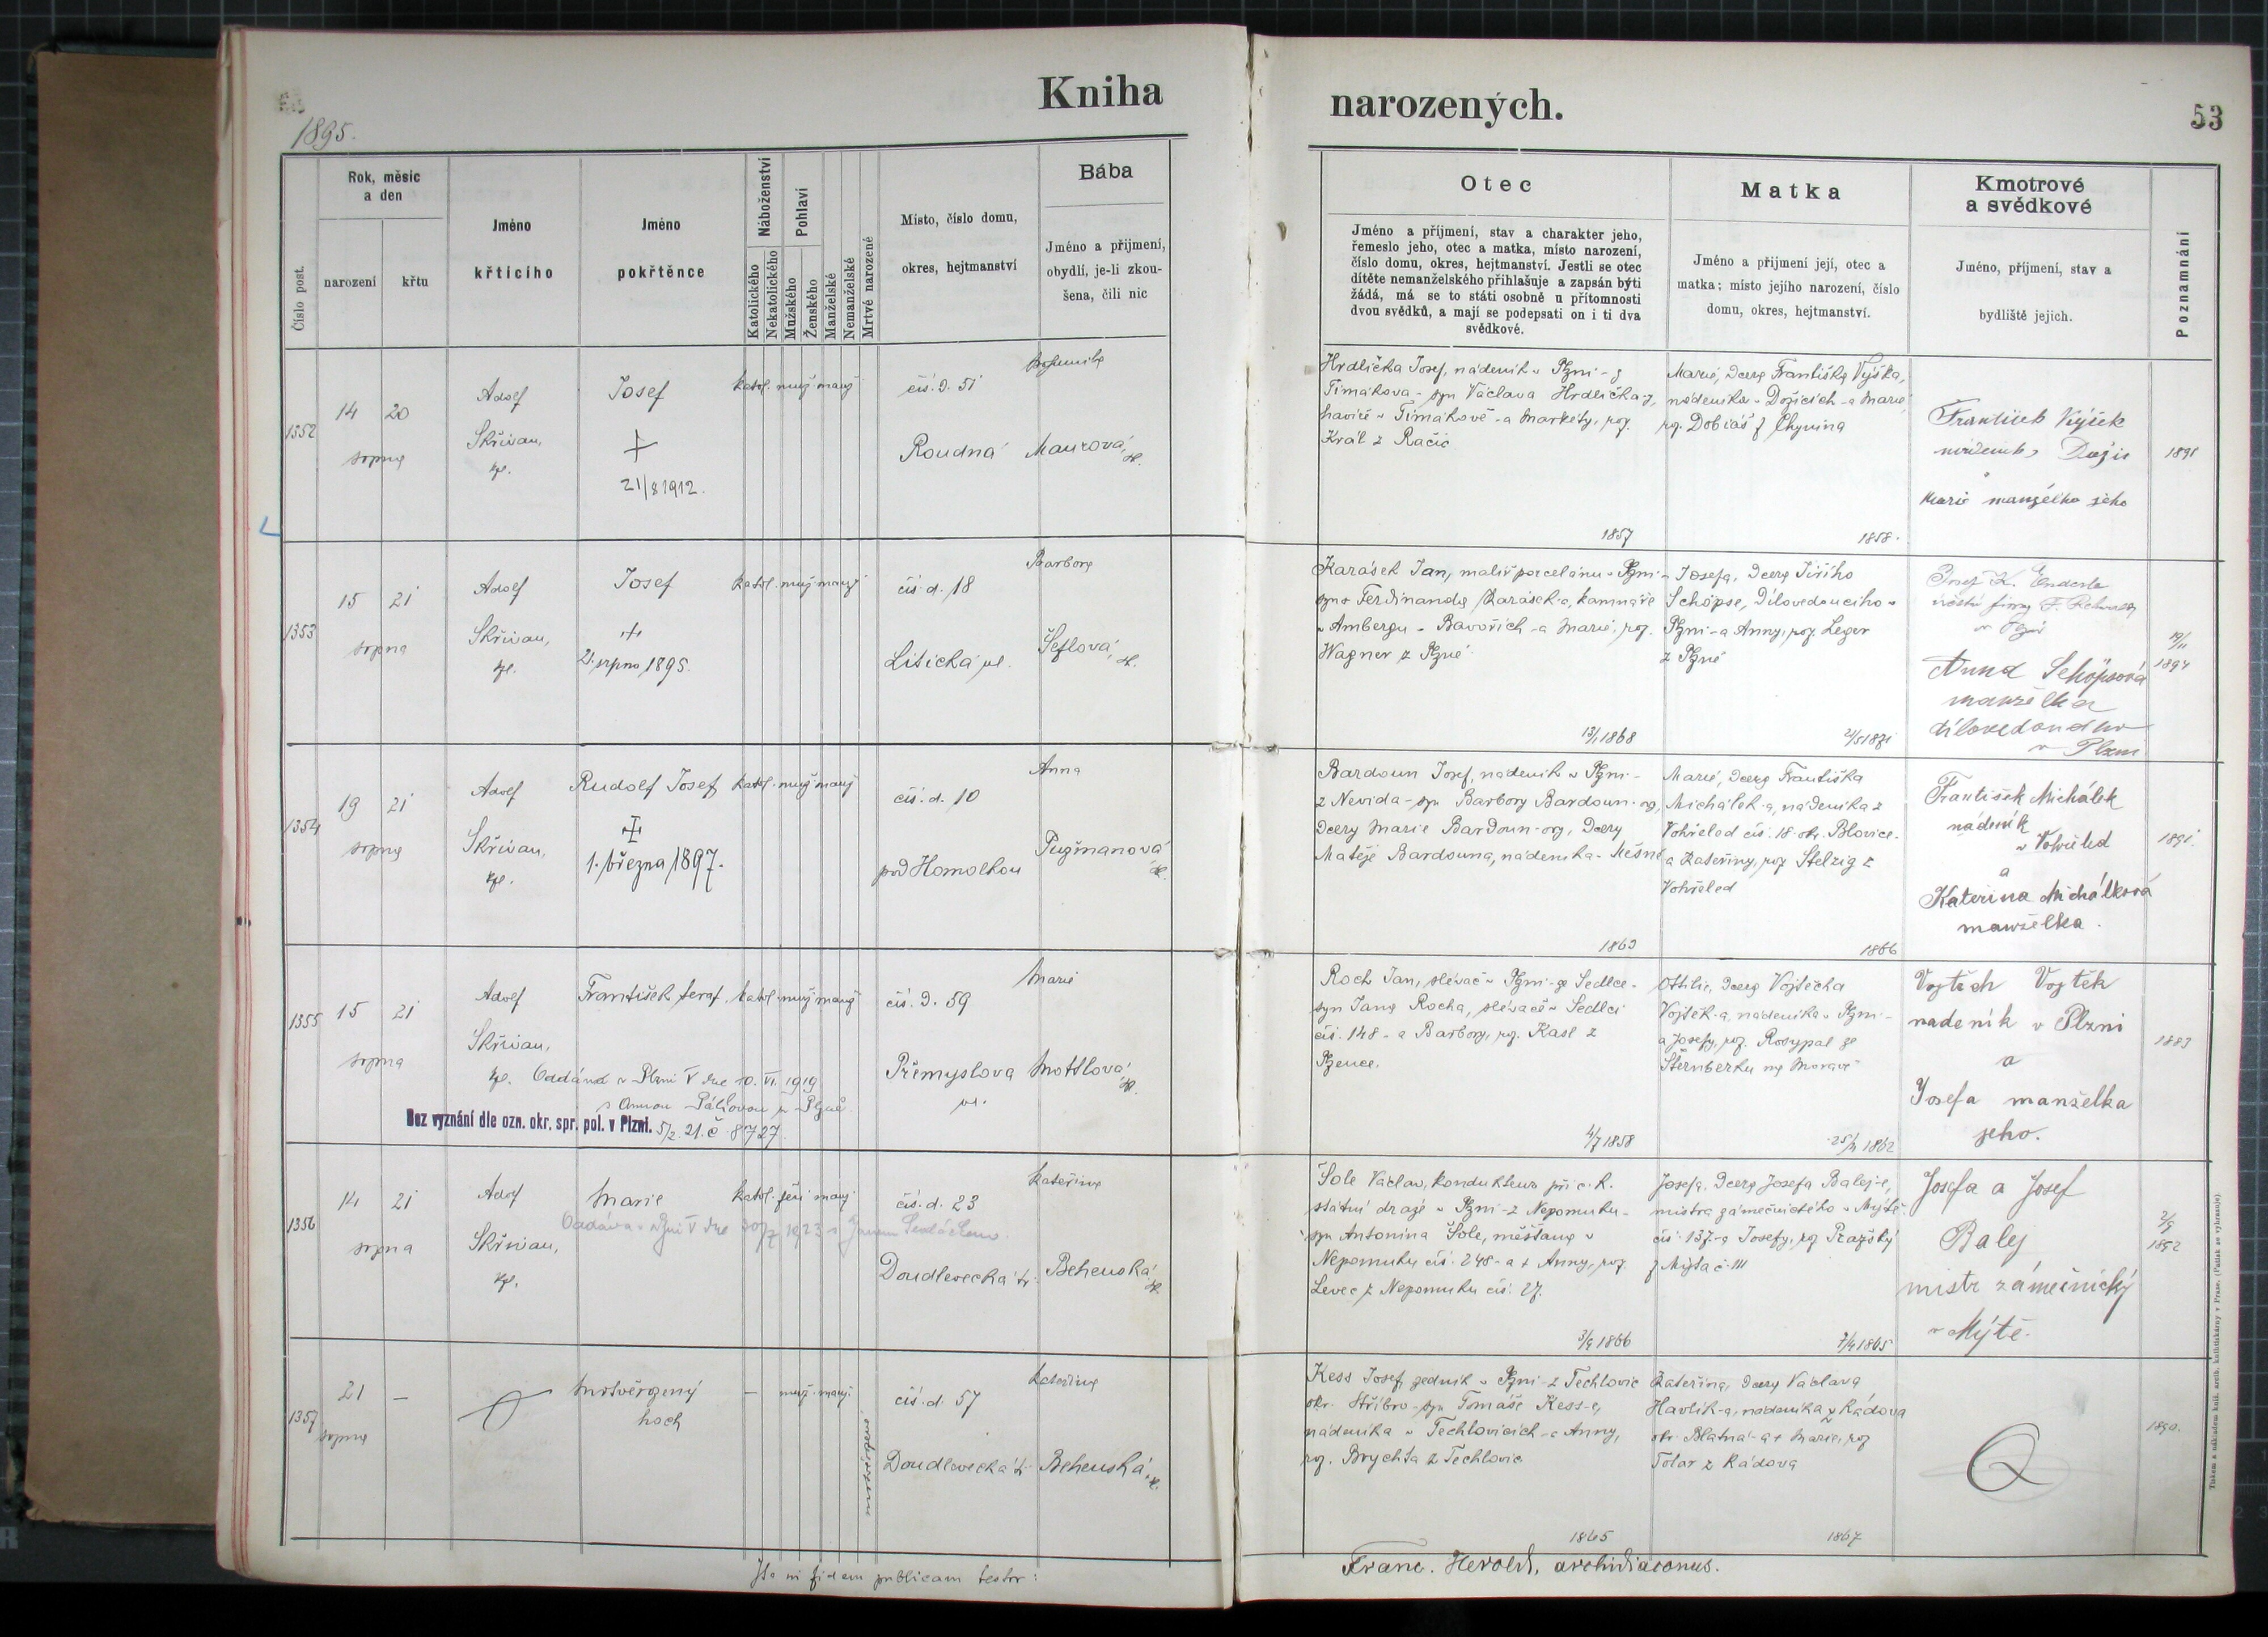 Kniha narozených.
53
1895.
Číslo post.
Rok, měsíc
a den
narození
křtu
Jméno
křtícího
Jméno
pokřtěnce
Náboženství
Katolického
Nekatolického
Pohlaví
Mužského
Ženského
Manželské
Nemanželské
Mrtvě narozené
Místo, číslo domu,
okres, hejtmanství
Bába
Jméno a příjmení,
obydlí, je-li zkou-
šena, čili nic
Otec
Jméno a příjmení, stav a charakter jeho,
řemeslo jeho, otec a matka, místo narození,
číslo domu, okres, hejtmanství. Jestli se otec
dítěte nemanželského přihlašuje a zapsán býti
žádá, má se to státi osobně u přítomnosti
dvou svědků, a mají se podepsati on i ti dva
svědkové.
Matka
Jméno a přijmení její, otec a
matka; místo jejího narození, číslo
domu, okres, hejtmanství.
Kmotrové
a svědkové
Jméno, příjmení, stav a
bydliště jejich.
Poznamnání
1352
14 20
srpna
Adolf
Skřivan,
kpl.
Josef
21/8 1912.
katol. muž. manž.
čís. d. 51
Roudná
Bohumila
Maurová,
Hrdlička Josef, nádeník v Plzni - z
Timákova - syn Václava Hrdličky,
havíře v Timákově - a Markéty, roz.
Král z Račic
1857
Marie, dcera Františka Výška,
nádeníka v Dožicích - a Marie,
roz. Dobiáš z Chynína
1858.
František Výšek
nádeník v Dožic
a
Marie manželka jeho
1353
15 21
srpna
Adolf
Skřivan,
kpl.
Josef
21. srpna 1895.
katol. muž. manž.
čís. d. 18
Litická ul.
Barbora
Šeflová,
Karásek Jan, malíř porcelánu v Plzni -
syn Ferdinanda Karásek-a, kamnáře
v Ambergu - Bavořích - a Marie, roz.
Wagner z Plzně
13/1 1868
Josefa, dcera Jiřího
Schöpse, dílovedoucího v
Plzni - a Anny, roz. Leger
z Plzně
Josef K. Enderle
Anna Schöpsová
manželka
dílovedoucího
v Plzni
19/11
1894
1354
19 21
srpna
Adolf
Skřivan,
kpl.
Rudolf Josef
1. března 1897.
katol. muž. manž.
čís. d. 10
pod Homolkou
Anna
Pužmanová
Bardoun Josef, nádeník v Plzni -
z Nevida - syn Barbory Bardoun-ov,
dcery Marie Bardoun-ovy, dcery
Matěje Bardouna, nádeníka -
1863
Marie, dcera Františka
Michálek-a, nádeníka z
Vohřeled čís. 18 okr. Blovice -
a Kateřiny, roz. Stelzig z
Vohřeled
1866
František Michálek
nádeník
v Vohřeled
a
Kateřina Michálková
manželka.
1891.
1355
15 21
srpna
Adolf
Skřivan,
kpl.
František Seraf.
katol. muž. manž.
Oddán v Plzni V dne 10. VI. 1919
s Annou
Bez vyznání dle ozn. okr. spr. pol. v Plzni. 5/2. 21. č. 8727.
čís. d. 59
Přemyslova
ul.
Marie
Mottlová,
Roch Jan, slévač v Plzni - ze Sedlce -
syn Jana Rocha, slévače v Sedlci
čís. 148 - a Barbory, roz. Kasl z
Plzence.
4/7 1858
Ottilie, dcera Vojtěcha
Vojtek-a, nádeníka v Plzni -
a Josefy, roz. Rosypal ze
Šternberku na Moravě
Vojtěch Vojtěk
nadeník v Plzni
a
Josefa manželka
jeho.
1883
1356
14 21
srpna
Adolf
Skřivan,
kpl.
Marie
katol. žen. manž.
Oddána v Plzni V dne 30/7 1923 s Janem Sedláčkem.
čís. d. 23
Doudlevecká tř.
Kateřina
Behenská,
Šole Václav, kondukteur při c. k.
státní dráze v Plzni - z Nepomuku -
syn Antonína Šole, měšťana v
Nepomuku čís. 248 - a † Anny, roz.
Levec z Nepomuku čís. 27.
3/9 1866
Josefa, dcera Josefa Balej-e,
mistra zámečnického v Mýtě
čís. 137 - a Josefy, roz. Pražský
z Mýta č. 111
7/4 1865
Josefa a Josef
Balej
mistr zámečnický
v Mýtě.
2/9
1892
1357
21 —
srpna
mrtvěrozený
hoch
— muž. manž.
mrtvěrozené
čís. d. 57
Doudlevecká tř.
Kateřina
Behenská,
Kess Josef, zedník v Plzni - z Techlovic
okr. Stříbro - syn Tomáše Kess-e,
nádeníka v Techlovicích - a Anny,
roz. Brychta z Techlovic
1865
Kateřina, dcera Václava
Havlík-a, nádeníka z Kádova
okr. Blatná - a † Marie, roz.
Tolar z Kádova
1867
1890.
Ita in fidem publicam testor:
Franc. Herold, archidiaconus.